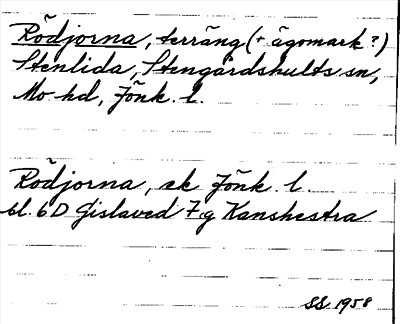 Rödjorna, terräng (+ ägomark?)
Stenlida, Stengårdshults sn,
Mo hd, Jönk. l.
Rödjorna, ek Jönk. l.
bl. 6D Gislaved 7g Kanshestra
SS 1958